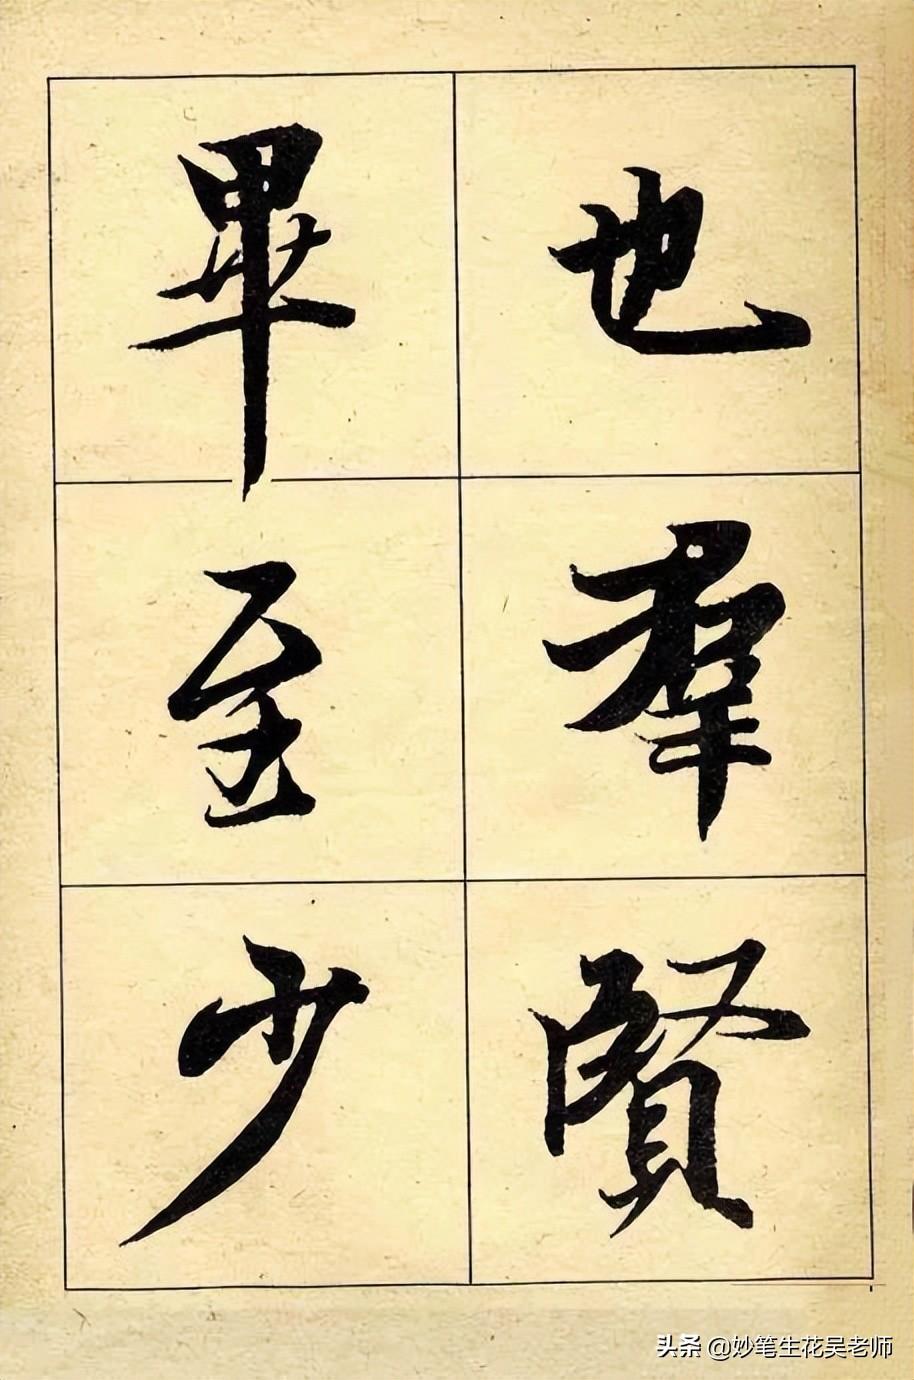 也羣賢
畢至少
头条 @妙笔生花吴老师